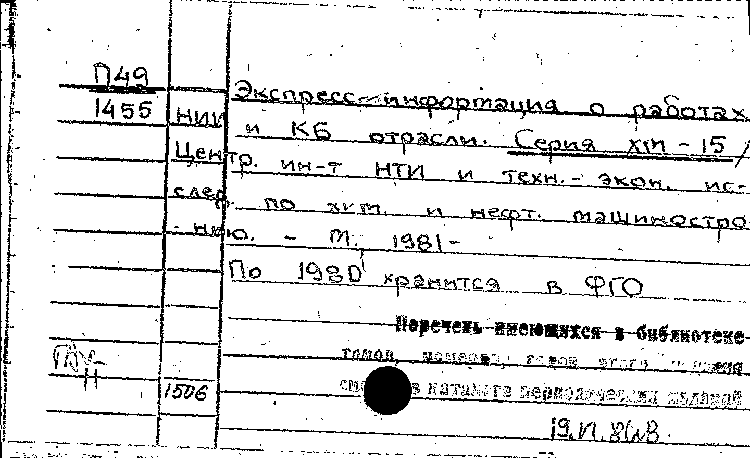 П49
1455
Экспресс-информация о работах
НИИ и КБ отрасли. Серия ХМ-15/
Центр. ин-т НТИ и техн.-экон. ис-
след. по хим. и нефт. машиностро-
нию. - М., 1981-
По 1980 хранится в ФГО
Перечень имеющихся в библиотеке
томов, номеров, годов этого
в каталоге периодических изданий
1506